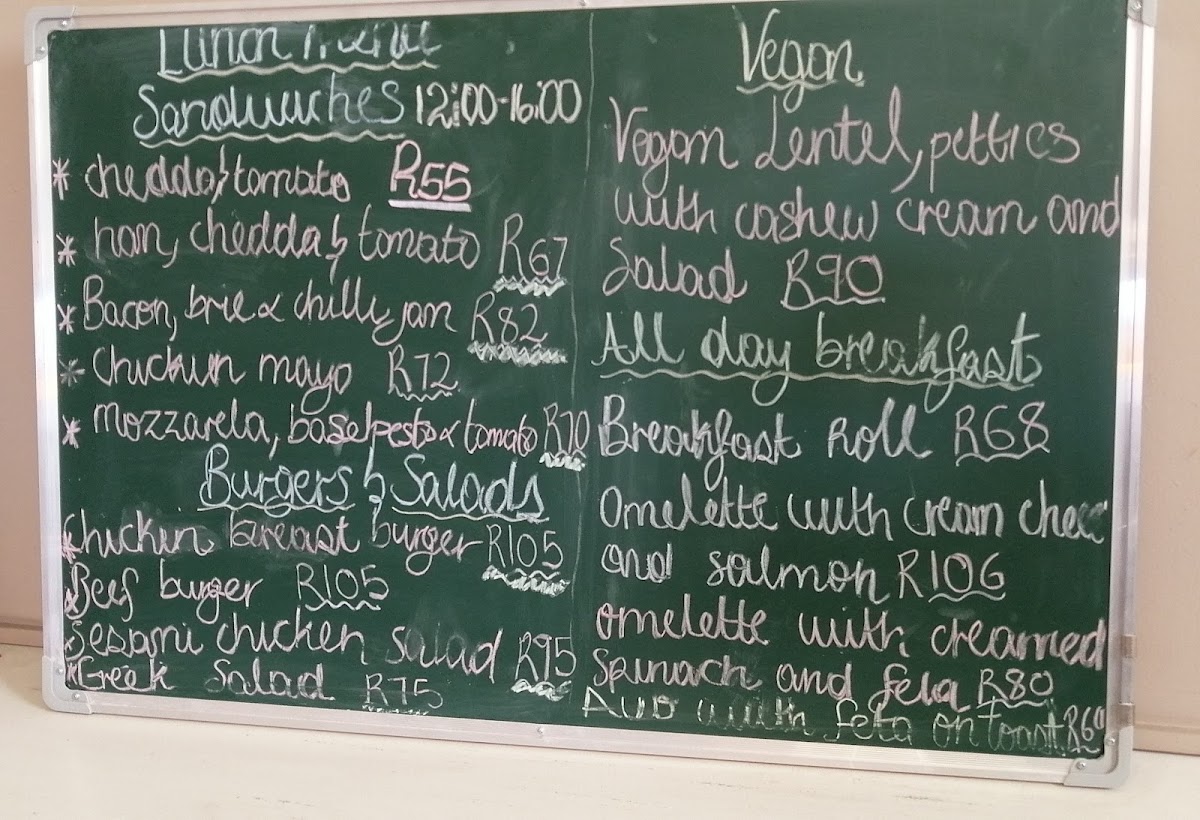 Lunch Menu
Sandwiches 12:00-16:00
* cheddar & tomato R55
* ham, chedda & tomato R67
* Bacon, brie & chilli jam R82
* chicken mayo R72
* mozzarela, baselpesto & tomato R70
Burgers & Salads
* Chicken breast burger R105
* Beef burger R105
* Sesami chicken salad R95
* Greek Salad R75
Vegan
Vegan Lentel, petties
with cashew cream and
Salad R90
All day breakfast
Breakfast roll R68
Omelette with cream chee
and salmon R106
omelette with creamed
Spinach and feta R80
Avo with feta on toast